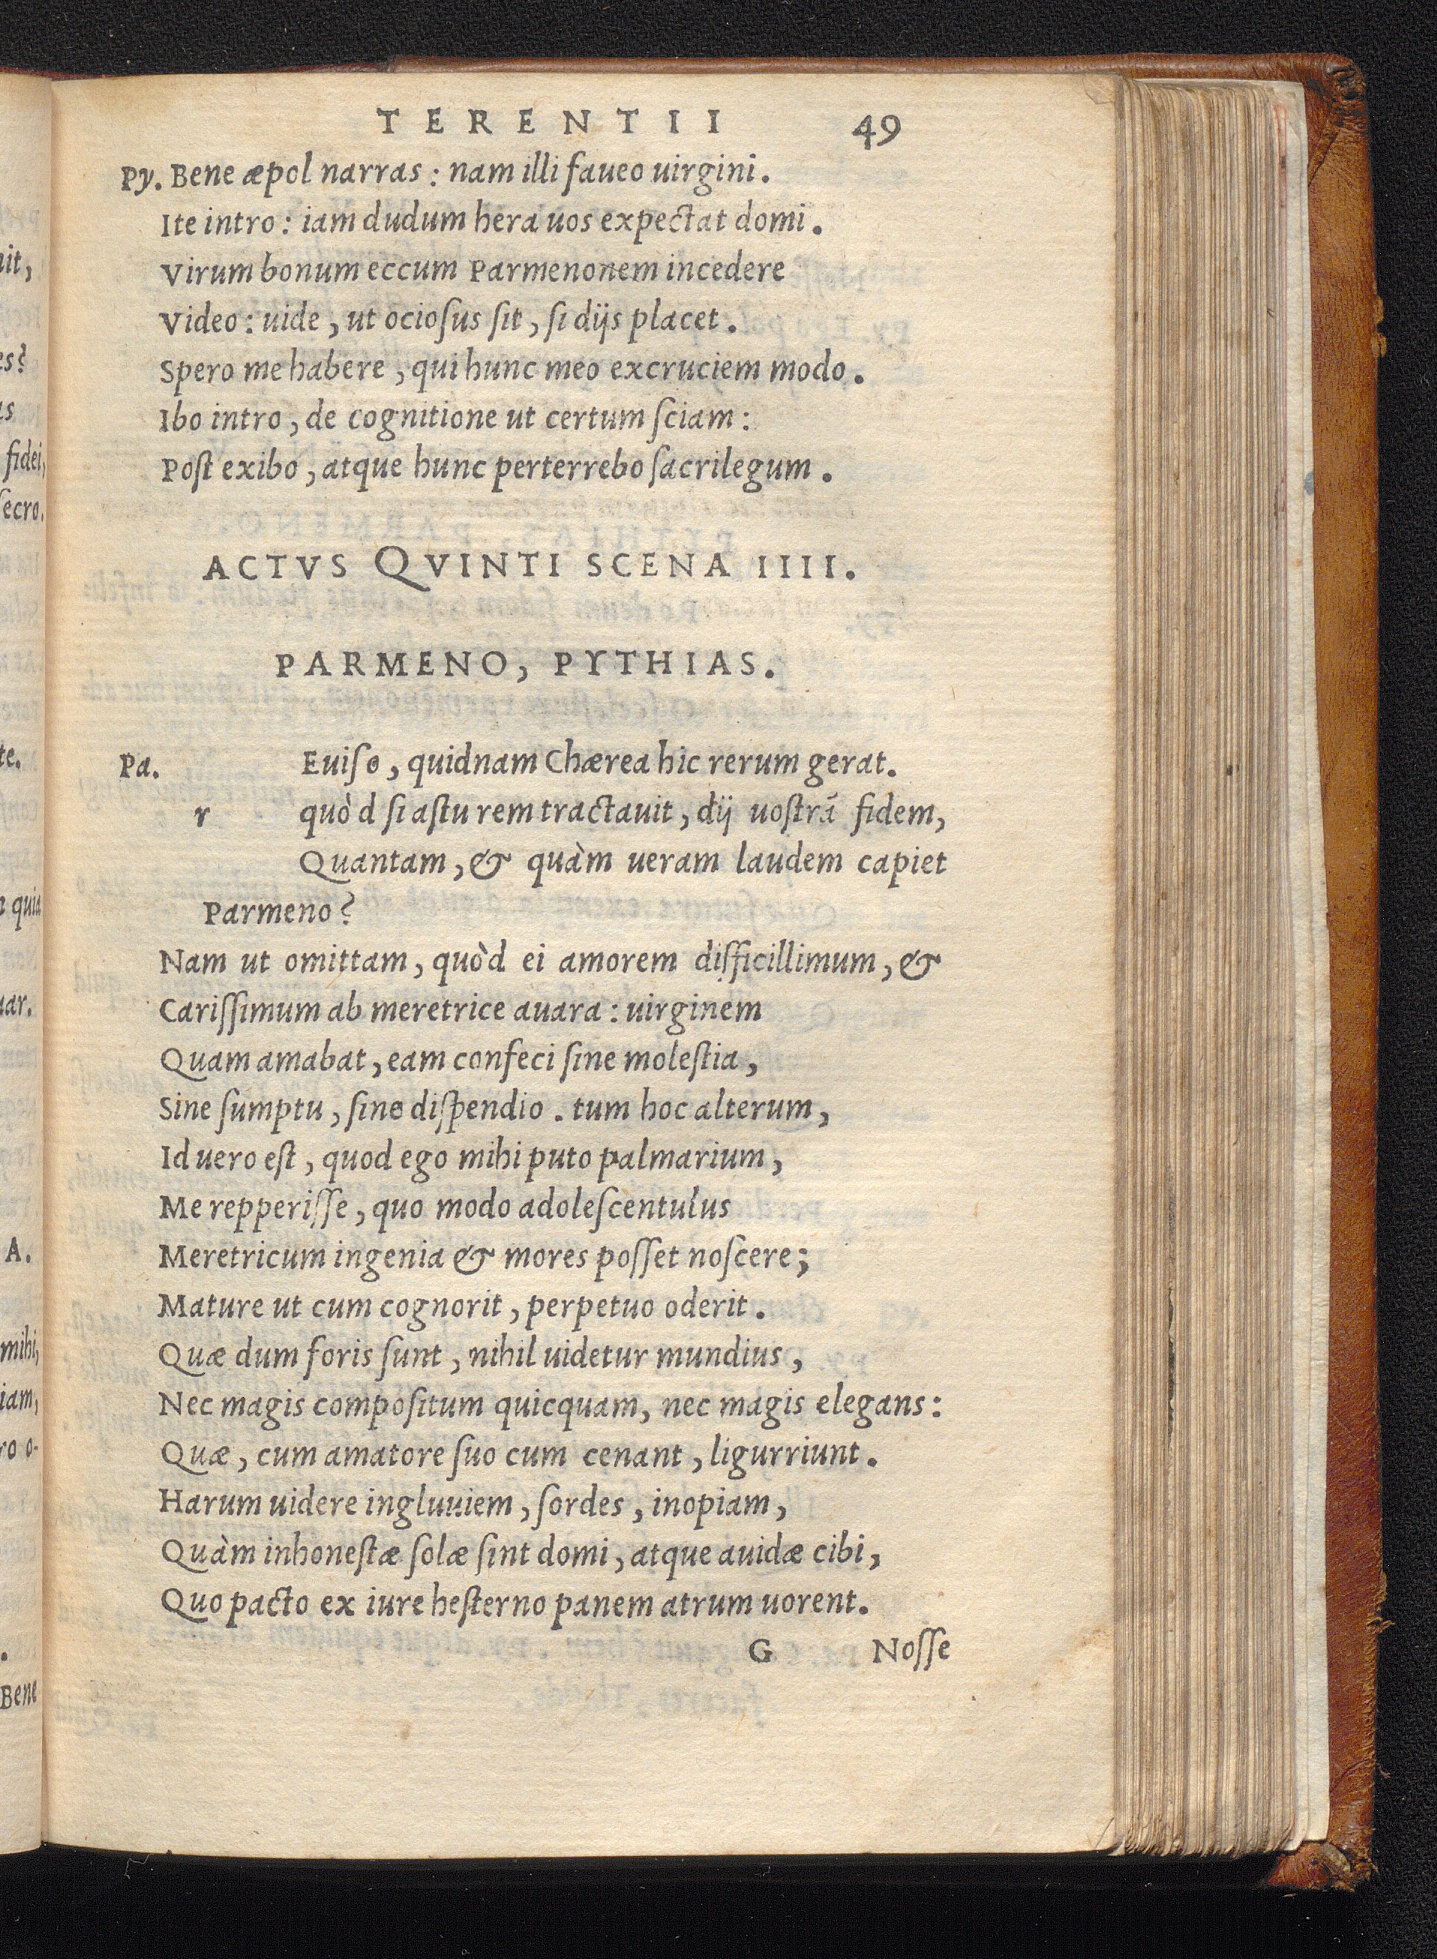 TERENTII 49
Py. Bene æpol narras : nam illi faueo uirgini.
Ite intro : iam dudum hera uos expectat domi.
Virum bonum eccum Parmenonem incedere
Video : uide , ut ocioſus ſit , ſi dijs placet.
Spero me habere , qui hunc meo excruciem modo.
Ibo intro , de cognitione ut certum ſciam :
Poſt exibo , atque hunc perterrebo ſacrilegum.
ACTVS QVINTI SCENA IIII.
PARMENO, PYTHIAS.
Pa. Euiſo , quidnam Chærea hic rerum gerat.
r quòd ſi aſtu rem tractauit , dij uoſtrā fidem,
Quantam , & quàm ueram laudem capiet
Parmeno?
Nam ut omittam, quòd ei amorem difficillimum, &
Cariſſimum ab meretrice auara : uirginem
Quam amabat , eam confeci ſine moleſtia ,
Sine ſumptu , ſine diſpendio . tum hoc alterum,
Id uero eſt , quod ego mihi puto palmarium,
Me repperiſſe , quo modo adoleſcentulus
Meretricum ingenia & mores poſſet noſcere;
Mature ut cum cognorit , perpetuo oderit.
Quæ dum foris ſunt , nihil uidetur mundius ,
Nec magis compoſitum quicquam, nec magis elegans :
Quæ, cum amatore ſuo cum cenant , ligurriunt.
Harum uidere ingluuiem , ſordes , inopiam ,
Quàm inhoneſtæ ſolæ ſint domi, atque auidæ cibi,
Quo pacto ex iure heſterno panem atrum uorent.
G Noſſe
uit,
es?
as
fidei,
ſecro.
te.
quia
uar.
A.
mihi,
iam,
ro o-
.
Bene